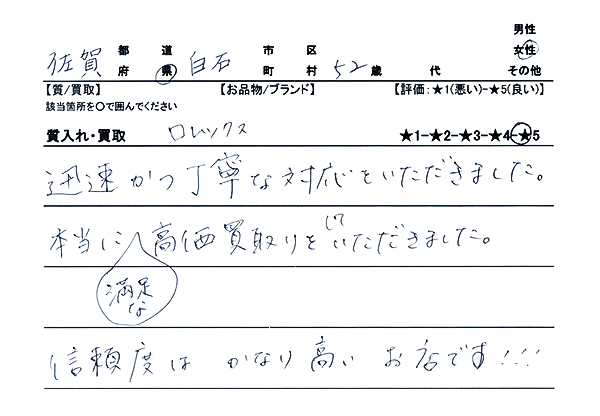 男性
佐賀 都道 白石 市区 女性
府県 町村 52歳代 その他
【質/買取】 【お品物/ブランド】 【評価:★1(悪い)-★5(良い)】
該当箇所を〇で囲んでください
質入れ・買取 ロレックス ★1-★2-★3-★4-★5
迅速かつ丁寧な対応をいただきました。
本当に満足な高価買取りをしていただきました。
信頼度は かなり高い お店です!!!